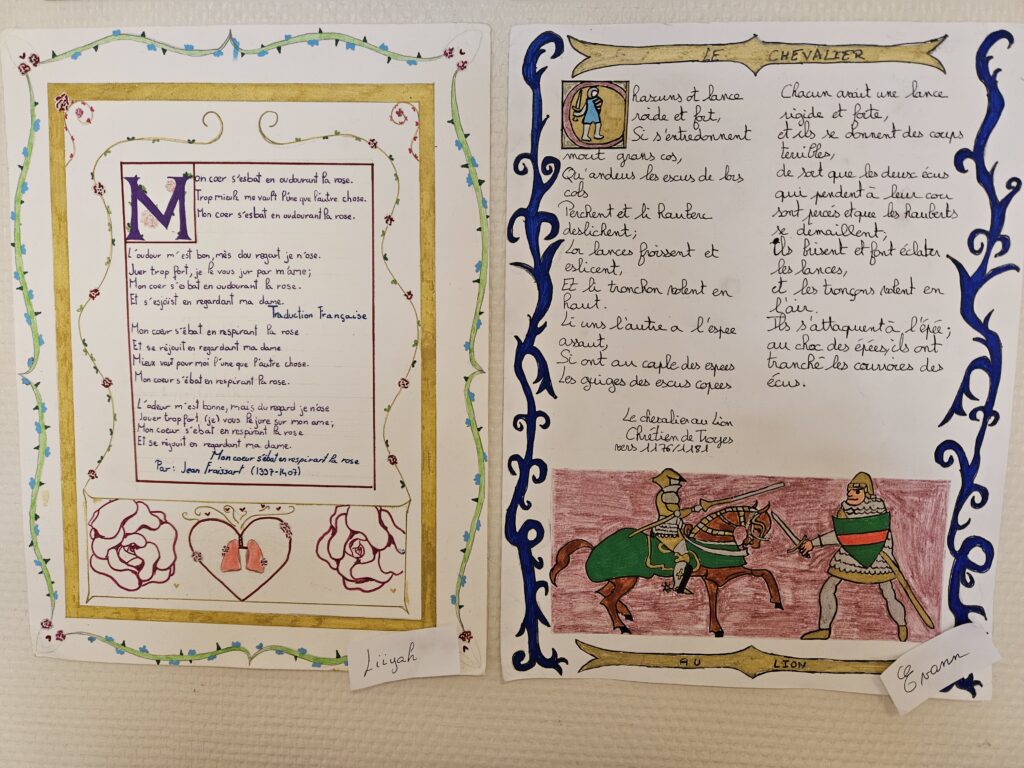 Mon coer s'esbat en oudourant la rose.
Trop mieulx me vault l'une que l'autre chose.
Mon coer s'esbat en oudourant la rose.
L'oudour m'est bon, mès dou regart je n'ose.
Juer trop fort, je le vous jur par m'ame;
Mon coer s'esbat en oudourant la rose.
Et s'esjoïst en regardant ma dame.
Traduction Française
Mon cœur s'ébat en respirant la rose
Et se réjouit en regardant ma dame
Mieux vaut pour moi l'une que l'autre chose.
Mon coeur s'ébat en respirant la rose.
L'odeur m'est bonne, mais du regard je n'ose
Jouer trop fort (je) vous le jure sur mon ame;
Mon coeur s'ébat en respirant la rose
Et se réjouit en regardant ma dame.
Mon coeur s'ébat en respirant la rose
Par: Jean Froissart (1337-1407)
Liiyah
LE CHEVALIER
Chascuns ot lance
roide et fort,
Si s'entredonnent
mout grans cos,
Qu'andeus les escus de lors
cols
Perchent et li hauberc
deslichent;
Lor lances froissent et
eslicent,
Et li tronchon volent en
haut.
Li uns l'autre a l'espee
assaut,
Si ont au caple des espees
Les guiges des escus copees
Chacun avait une lance
rigide et forte,
et ils se donnent des coups
terribles,
de sort que les deux écus
qui pendent à leur cou
sont percés et que les hauberts
se démaillent;
Ils brisent et font éclater
les lances,
et les tronçons volent en
l'air.
Ils s'attaquent à l'épée;
au choc des épées, ils ont
tranché les courroies des
écus.
Le chevalier au Lion
Chrétien de Troyes
vers 1176/1181
AU LION
Evann